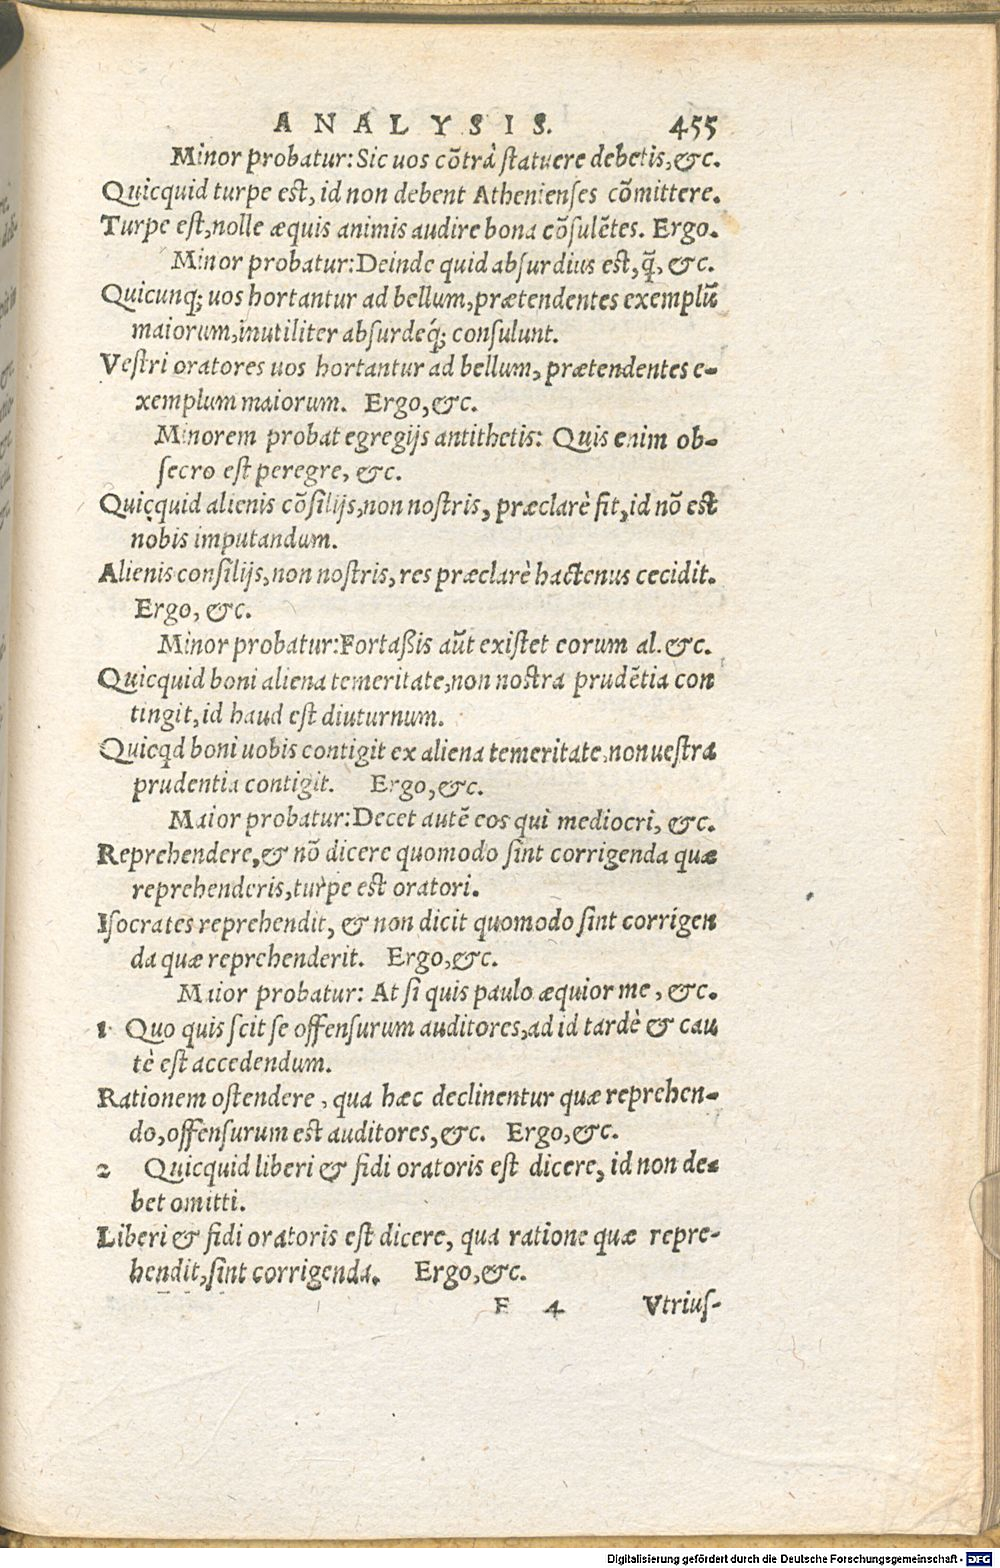 ANALYSIS. 455
Minor probatur: Sic uos cõtrà statuere debetis, &c.
Quicquid turpe est, id non debent Athenienses cõmittere.
Turpe est, nolle æquis animis audire bona cõsulẽtes. Ergo.
Minor probatur: Deinde quid absurdius est, q̃, &c.
Quicunq; uos hortantur ad bellum, prætendentes exemplũ
maiorum, inutiliter absurdeq́; consulunt.
Vestri oratores uos hortantur ad bellum, prætendentes e-
xemplum maiorum. Ergo, &c.
Minorem probat egregijs antithetis: Quis enim ob-
secro est peregre, &c.
Quicquid alienis cõsilijs, non nostris, præclarè fit, id nõ est
nobis imputandum.
Alienis consilijs, non nostris, res præclarè hactenus cecidit.
Ergo, &c.
Minor probatur: Fortaßis aũt existet eorum al. &c.
Quicquid boni aliena temeritate, non nostra prudẽtia con
tingit, id haud est diuturnum.
Quicqd boni uobis contigit ex aliena temeritate, non uestra
prudentia contigit. Ergo, &c.
Maior probatur: Decet autẽ eos qui mediocri, &c.
Reprehendere, & nõ dicere quomodo sint corrigenda quæ
reprehenderis, turpe est oratori.
Isocrates reprehendit, & non dicit quomodo sint corrigen
da quæ reprehenderit. Ergo, &c.
Maior probatur: At si quis paulo æquior me, &c.
1 Quo quis scit se offensurum auditores, ad id tardè & cau
tè est accedendum.
Rationem ostendere, qua hæc declinentur quæ reprehen-
do, offensurum est auditores, &c. Ergo, &c.
2 Quicquid liberi & fidi oratoris est dicere, id non de-
bet omitti.
Liberi & fidi oratoris est dicere, qua ratione quæ repre-
hendit, sint corrigenda. Ergo, &c.
F 4 Vtrius-
Digitalisierung gefördert durch die Deutsche Forschungsgemeinschaft - DFG